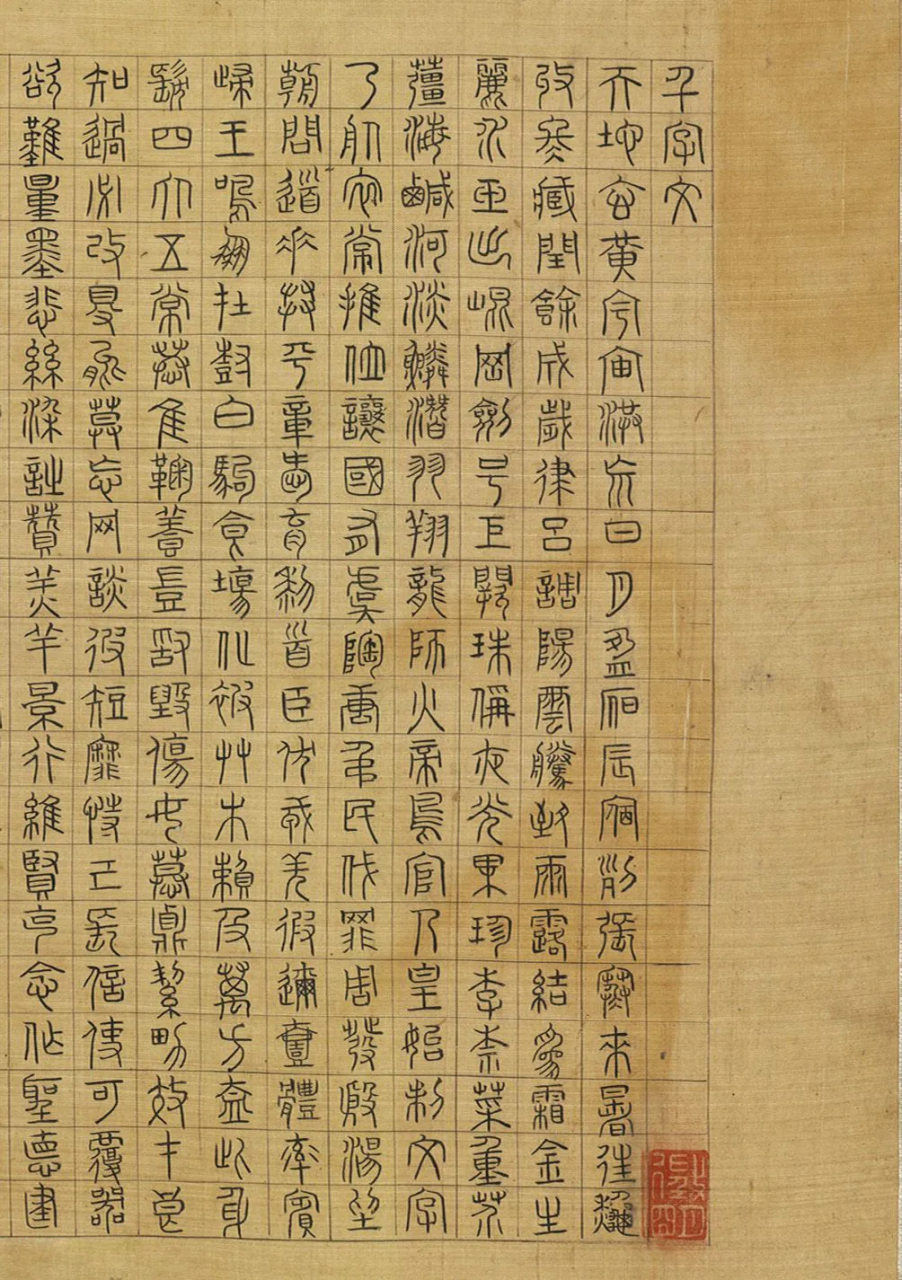 千字文
天地玄黃宇宙洪荒日月盈昃辰宿列張寒來暑往秋
收冬藏閏餘成歲律呂調陽雲騰致雨露結為霜金生
麗水玉出崐岡劍号巨闕珠稱夜光果珍李柰菜重芥
薑海鹹河淡鱗潛羽翔龍師火帝鳥官人皇始制文字
乃服衣裳推位讓國有虞陶唐弔民伐罪周發殷湯坐
朝問道垂拱平章愛育黎首臣伏戎羌遐邇壹體率賓
歸王鳴鳳在樹白駒食場化被草木賴及萬方蓋此身
髮四大五常恭惟鞠養豈敢毀傷女慕貞絜男效才良
知過必改得能莫忘罔談彼短靡恃己長信使可覆器
欲難量墨悲絲染詩贊羔羊景行維賢克念作聖德建